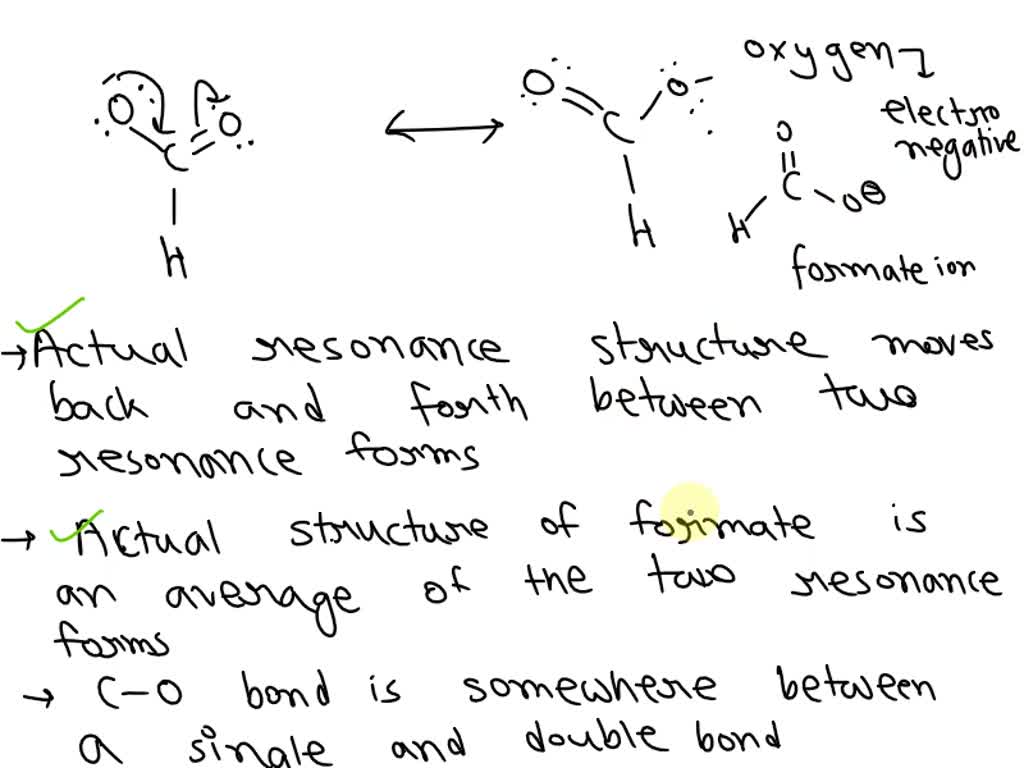 oxygen
electro
negative
O O
C
H
O O -
C
H
O
C
H O⊖
formate ion
→ Actual resonance structure moves
back and forth between two
resonance forms
→ Actual structure of formate is
an average of the two resonance
forms
→ C-O bond is somewhere between
a single and double bond